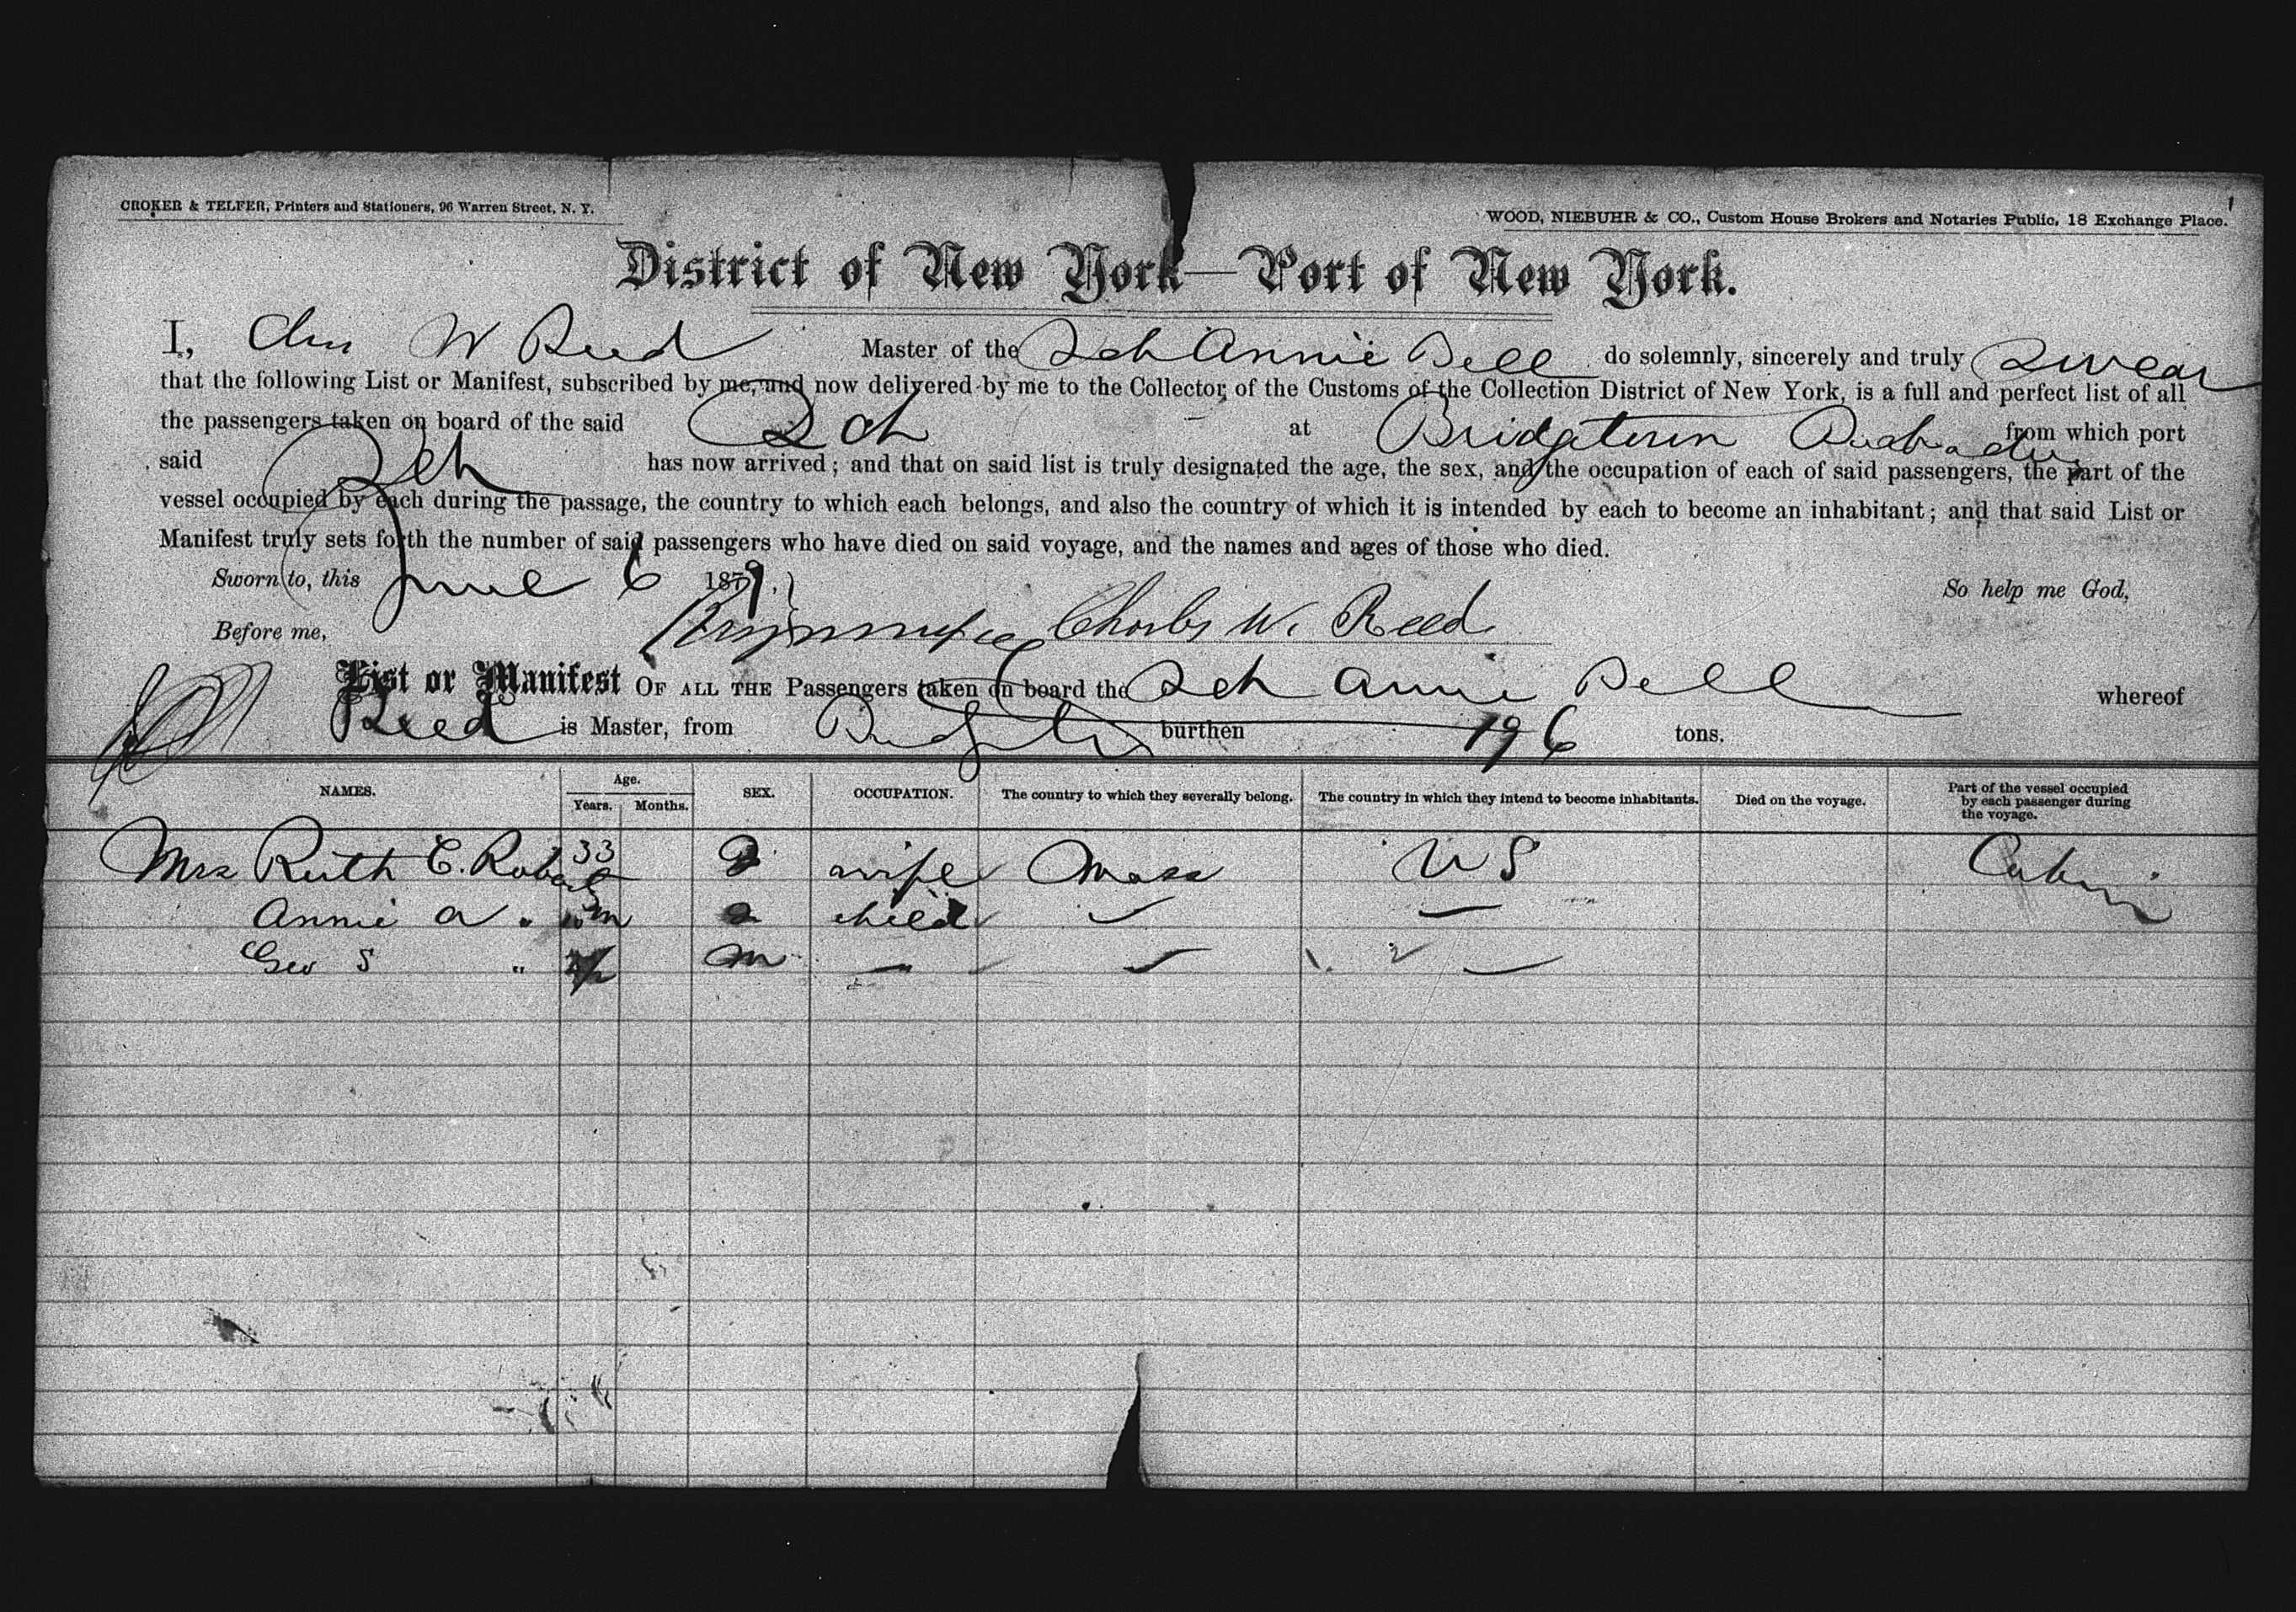 CROKER & TELFER, Printers and Stationers, 96 Warren Street, N. Y.
WOOD, NIEBUHR & CO., Custom House Brokers and Notaries Public, 18 Exchange Place.
District of New York—Port of New York.
I, Chas W Reed Master of the Sch Annie Bell do solemnly, sincerely and truly swear
that the following List or Manifest, subscribed by me, and now delivered by me to the Collector of the Customs of the Collection District of New York, is a full and perfect list of all
the passengers taken on board of the said Sch at Bridgetown Barbados from which port
said Sch has now arrived; and that on said list is truly designated the age, the sex, and the occupation of each of said passengers, the part of the
vessel occupied by each during the passage, the country to which each belongs, and also the country of which it is intended by each to become an inhabitant; and that said List or
Manifest truly sets forth the number of said passengers who have died on said voyage, and the names and ages of those who died.
Sworn to, this June 6 1879. So help me God,
Before me, Charles W. Reed
List or Manifest OF ALL THE Passengers taken on board the Sch Annie Bell whereof
Reed is Master, from burthen 196 tons.
NAMES. Age. Years. Months. SEX. OCCUPATION. The country to which they severally belong. The country in which they intend to become inhabitants. Died on the voyage. Part of the vessel occupied by each passenger during the voyage.
Mrs Ruth E. 33 wife Mass U S Cabin
Annie A " child
Geo S " m